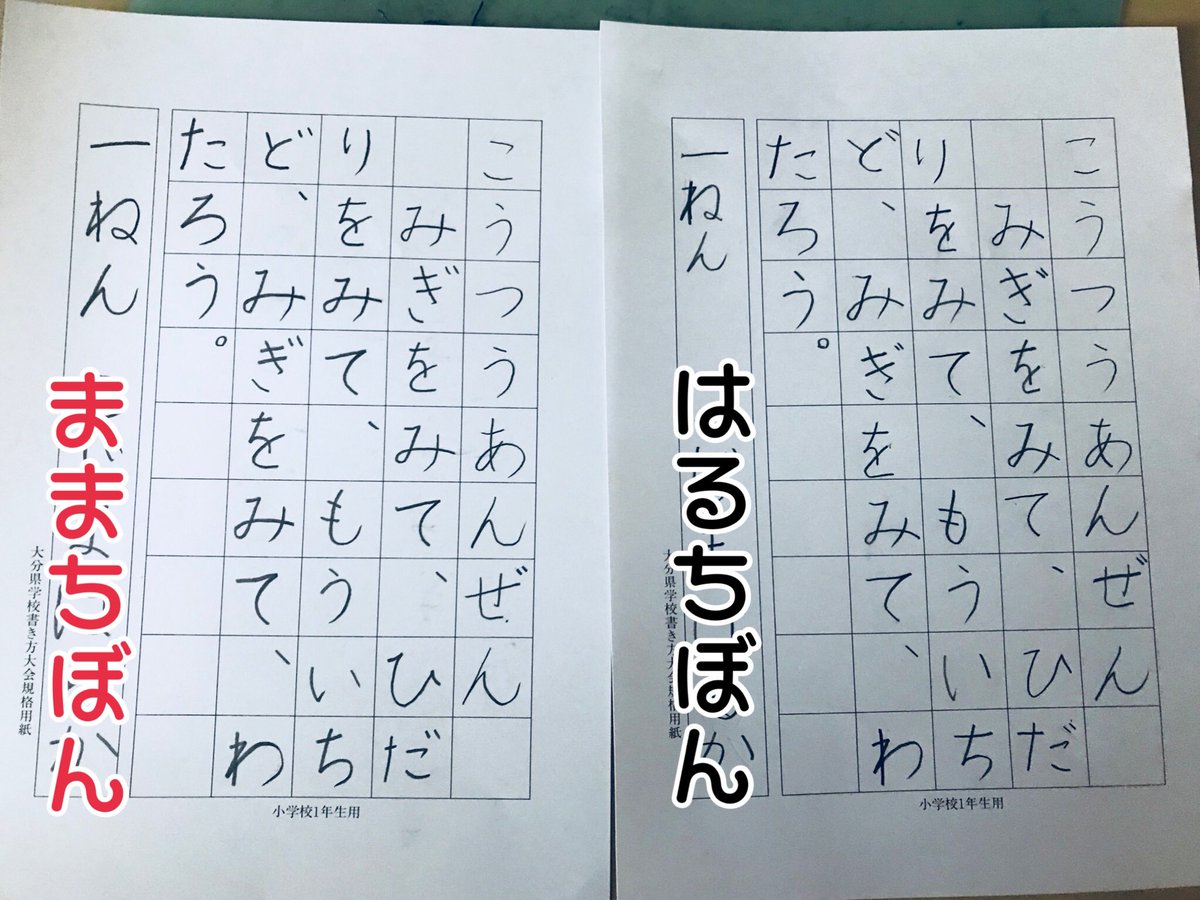 こうつうあんぜん
みぎをみて、ひだ
りをみて、もういち
ど、みぎをみて、わ
たろう。
一ねん
ままちぼん
大分県学校書き方大会規格用紙
小学校1年生用
こうつうあんぜん
みぎをみて、ひだ
りをみて、もういち
ど、みぎをみて、わ
たろう。
一ねん
はるちぼん
大分県学校書き方大会規格用紙
小学校1年生用